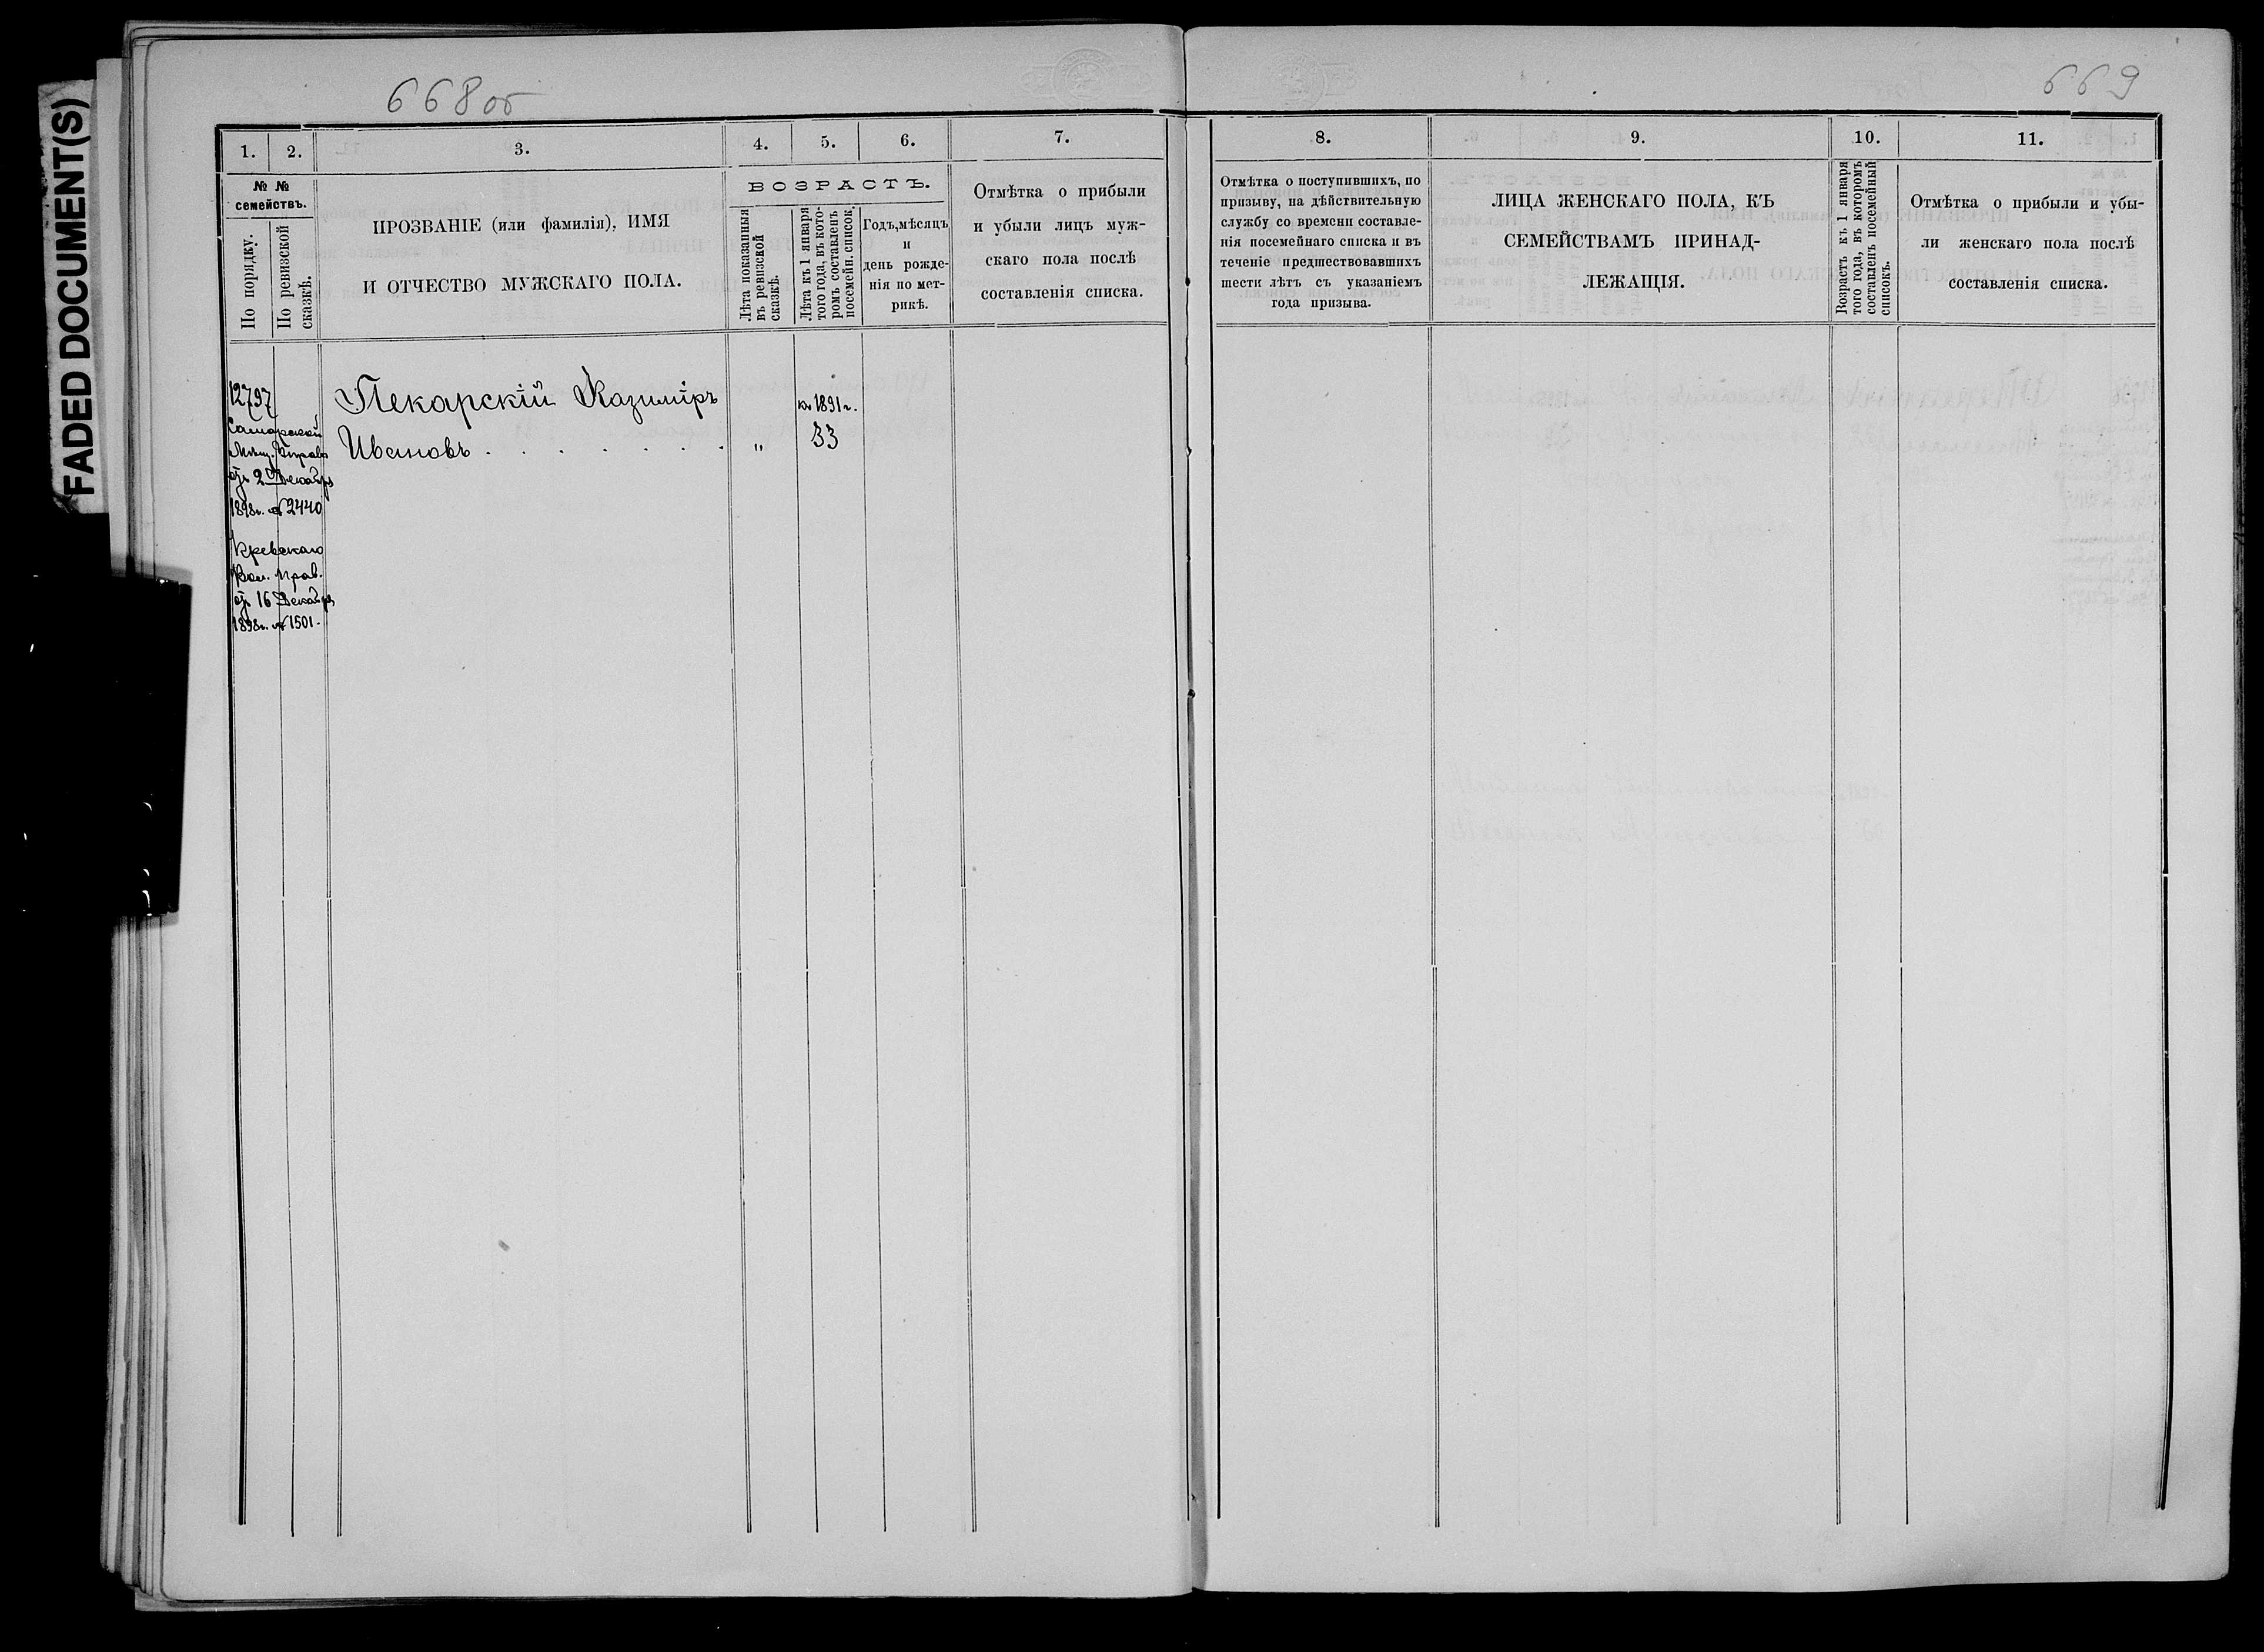 FADED DOCUMENT(S)
668об
669
1. 2. 3. 4. 5. 6. 7.
№ № семействъ.
По порядку.
По ревизской сказкѣ.
ПРОЗВАНІЕ (или фамилія), ИМЯ
И ОТЧЕСТВО МУЖСКАГО ПОЛА.
ВОЗРАСТЪ.
Лѣта показанныя
въ ревизской
сказкѣ.
Лѣта къ 1 января
того года, въ кото-
ромъ составленъ
посемейн. список.
Годъ, мѣсяцъ
и
день рожде-
нія по мет-
рикѣ.
Отмѣтка о прибыли
и убыли лицъ муж-
скаго пола послѣ
составленія списка.
8. 9. 10. 11.
Отмѣтка о поступившихъ, по
призыву, на дѣйствительную
службу со времени составле-
нія посемейнаго списка и въ
теченіе предшествовавшихъ
шести лѣтъ съ указаніемъ
года призыва.
ЛИЦА ЖЕНСКАГО ПОЛА, КЪ
СЕМЕЙСТВАМЪ ПРИНАД-
ЛЕЖАЩІЯ.
Возрастъ къ 1 января
того года, въ которомъ
составленъ посемейный
списокъ.
Отмѣтка о прибыли и убы-
ли женскаго пола послѣ
составленія списка.
12797
Самарской
Мѣщ. Управы
отъ 2 Декабря
1898г. № 2440
Кревскаго
Вол. Прав.
отъ 16 Декабря
1898г. № 1501
Пекарскій Казиміръ
Ивановъ . . . . . . . „ 33
къ 1891 г.